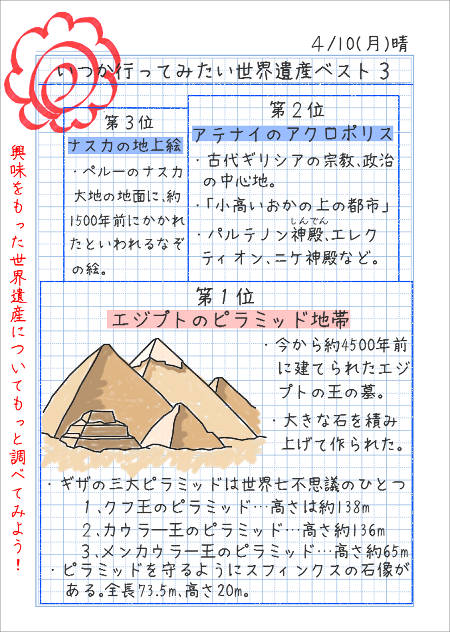 4/10(月)晴
いつか行ってみたい世界遺産ベスト3
第3位
ナスカの地上絵
・ペルーのナスカ
大地の地面に、約
1500年前にかかれ
たといわれるなぞ
の絵。
第2位
アテナイのアクロポリス
・古代ギリシアの宗教、政治
の中心地。
・「小高いおかの上の都市」
しんでん
・パルテノン神殿、エレク
ティオン、ニケ神殿など。
第1位
エジプトのピラミッド地帯
・今から約4500年前
に建てられたエジ
プトの王の墓。
・大きな石を積み
上げて作られた。
・ギザの三大ピラミッドは世界七不思議のひとつ
1、クフ王のピラミッド…高さは約138m
2、カウラー王のピラミッド…高さ約136m
3、メンカウラー王のピラミッド…高さ約65m
・ピラミッドを守るようにスフィンクスの石像が
ある。全長73.5m、高さ20m。
興味をもった世界遺産についてもっと調べてみよう!